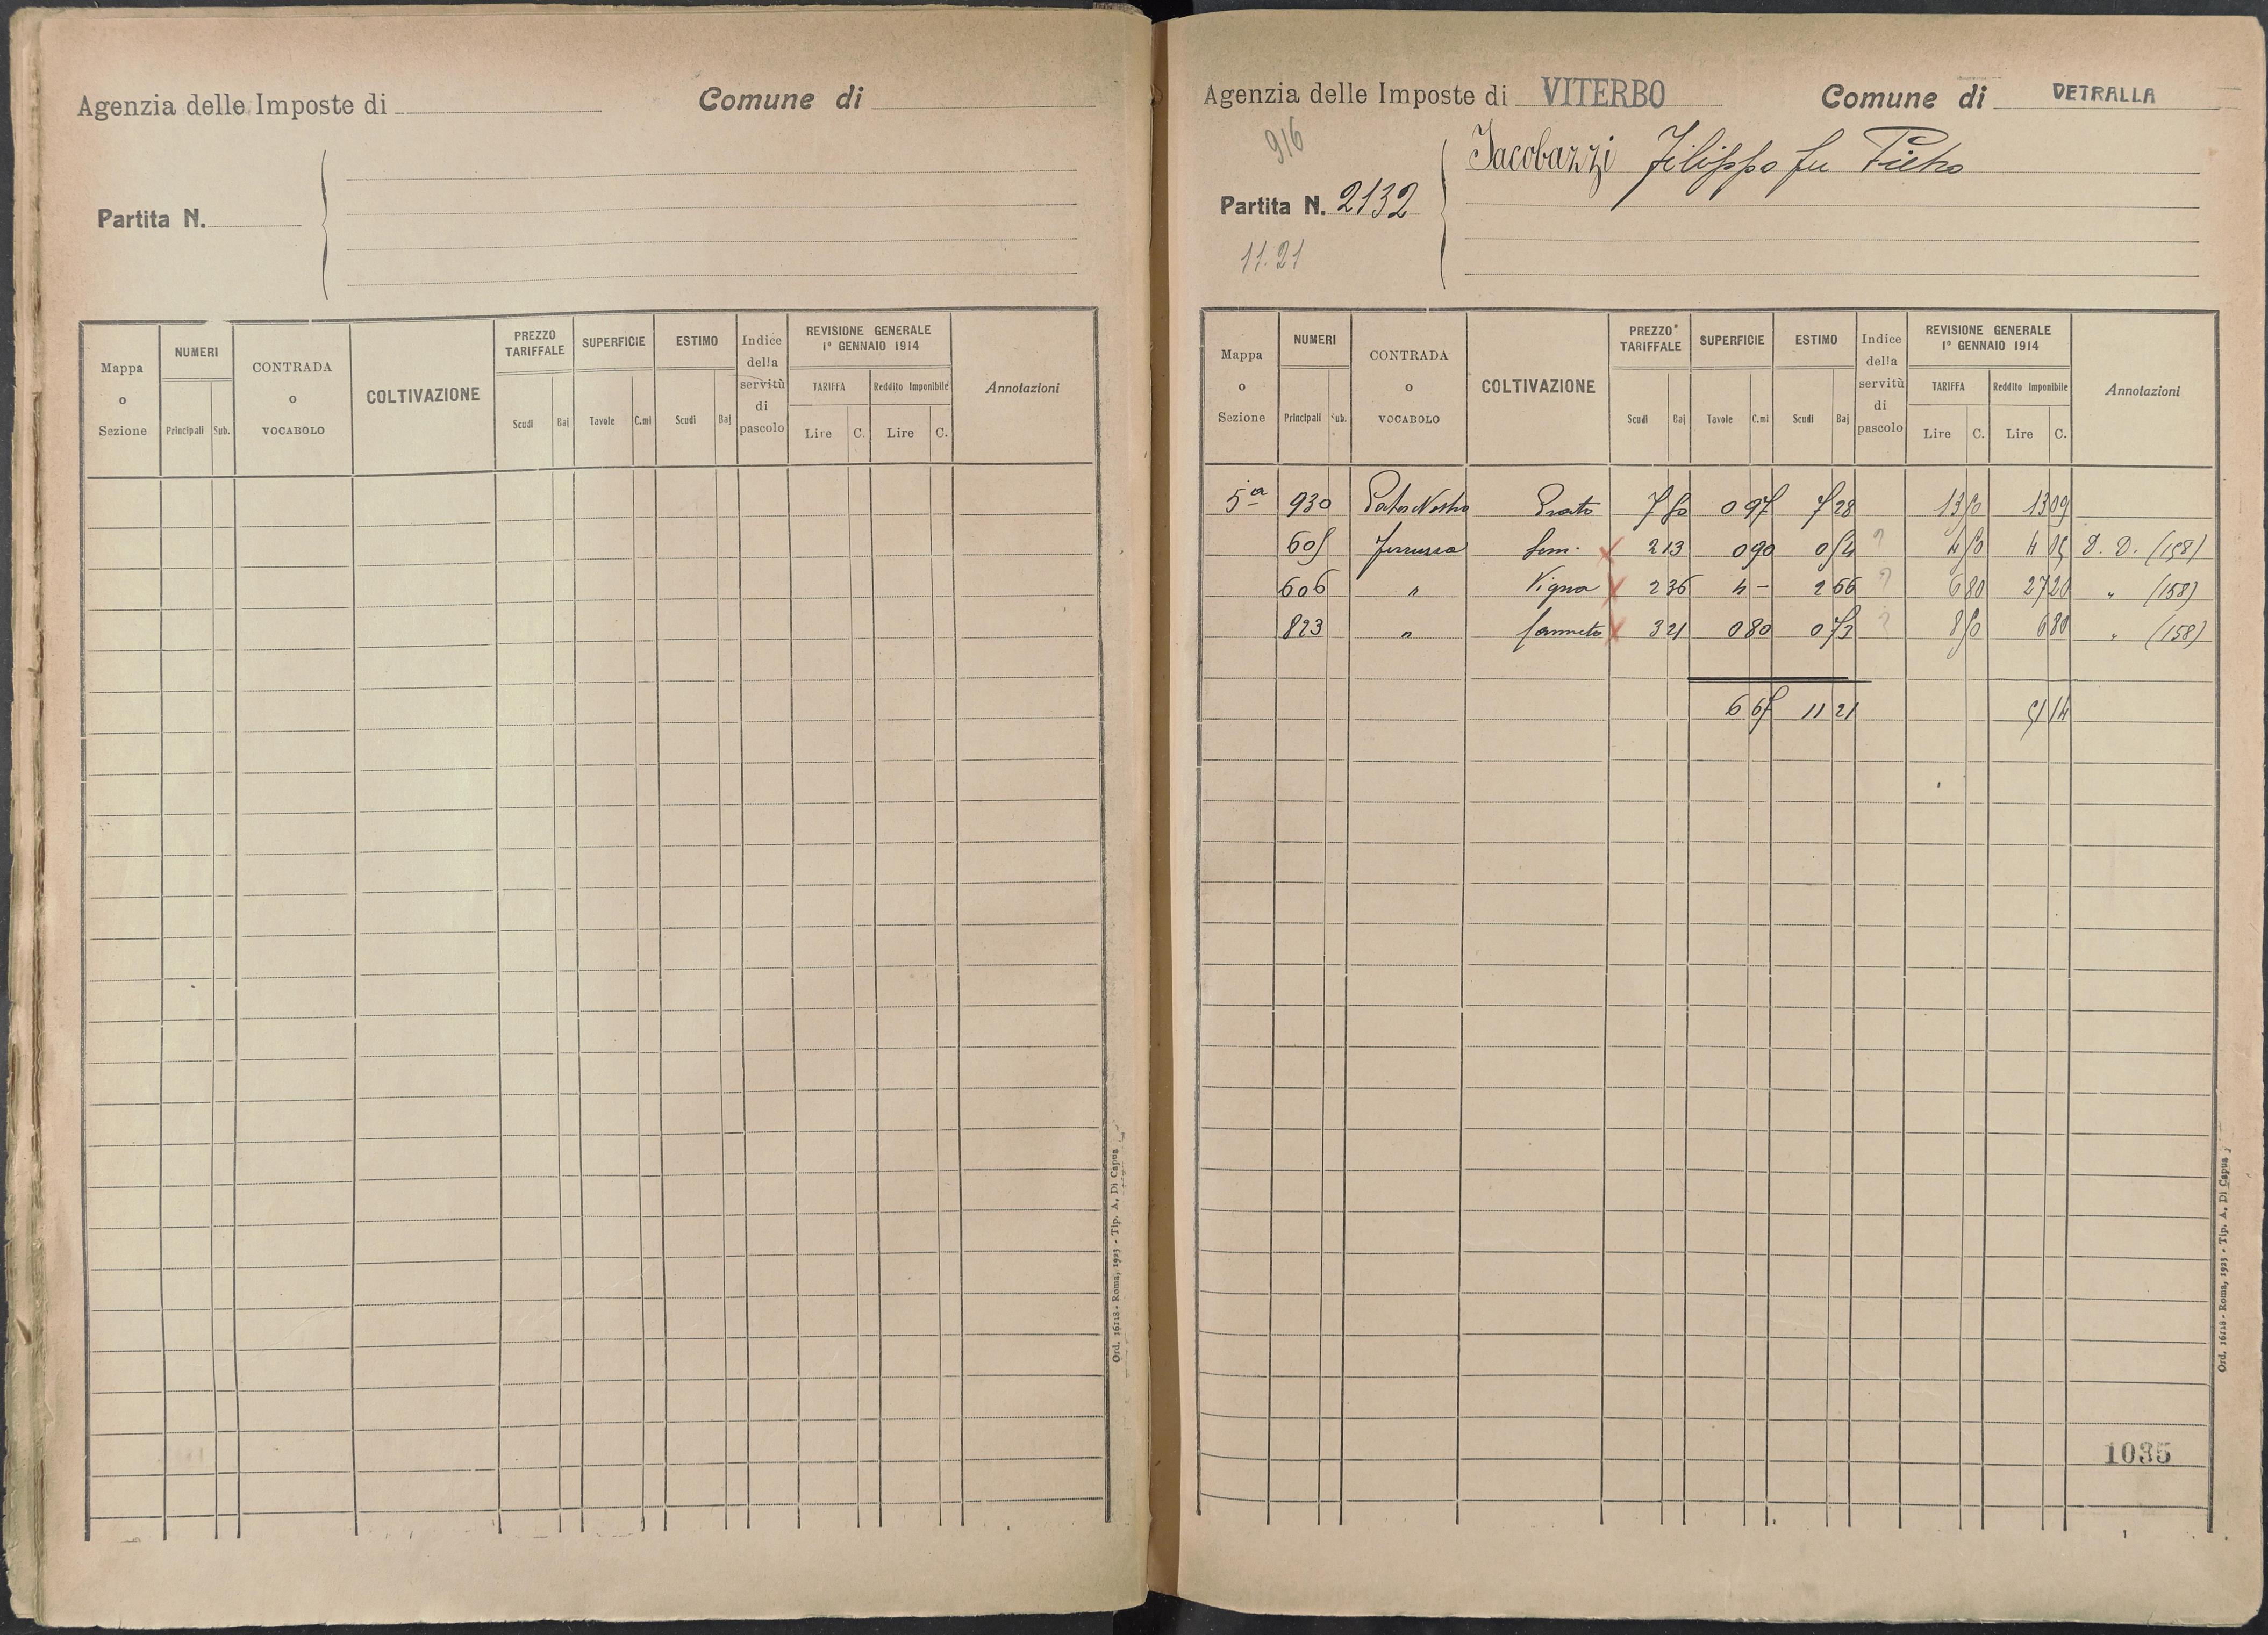 Agenzia delle Imposte di
Comune di
Partita N.
Mappa o Sezione
NUMERI
Principali Sub.
CONTRADA o VOCABOLO
COLTIVAZIONE
PREZZO TARIFFALE
Scudi Baj
SUPERFICIE
Tavole C.mi
ESTIMO
Scudi Baj
Indice della servitù di pascolo
REVISIONE GENERALE
1° GENNAIO 1914
TARIFFA Reddito Imponibile
Lire C. Lire C.
Annotazioni
Ord. 16118 - Roma, 1923 - Tip. A. Di Capua
Agenzia delle Imposte di VITERBO
Comune di VETRALLA
916
Jacobazzi Filippo fu Pietro
Partita N. 2132
11.21
Mappa o Sezione
NUMERI
Principali Sub.
CONTRADA o VOCABOLO
COLTIVAZIONE
PREZZO TARIFFALE
Scudi Baj
SUPERFICIE
Tavole C.mi
ESTIMO
Scudi Baj
Indice della servitù di pascolo
REVISIONE GENERALE
1° GENNAIO 1914
TARIFFA Reddito Imponibile
Lire C. Lire C.
Annotazioni
5ª 930 Prato 7 50 0 97 7 28 13 50 13 09
605 Sem. x 2 13 0 90 0 54 ? 4 50 4 05 D. D. (158)
606 " Vigna x 2 36 4 - 2 66 ? 6 80 27 20 " (158)
823 " Canneto x 3 21 0 80 0 73 ? 8 50 6 80 " (158)
6 67 11 21 51 14
1035
Ord. 16118 - Roma, 1923 - Tip. A. Di Capua